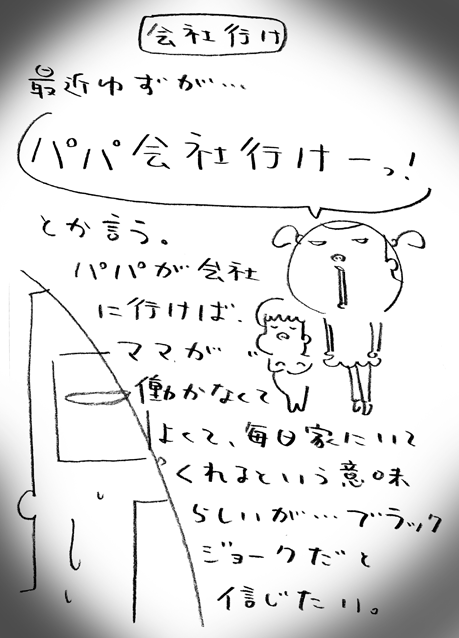 会社行け
最近ゆずが…
パパ会社行けーっ!
とか言う。
パパが会社
に行けば、
ママが
働かなくて
よくて、毎日家にいて
くれるという意味
らしいが…ブラック
ジョークだと
信じたい。